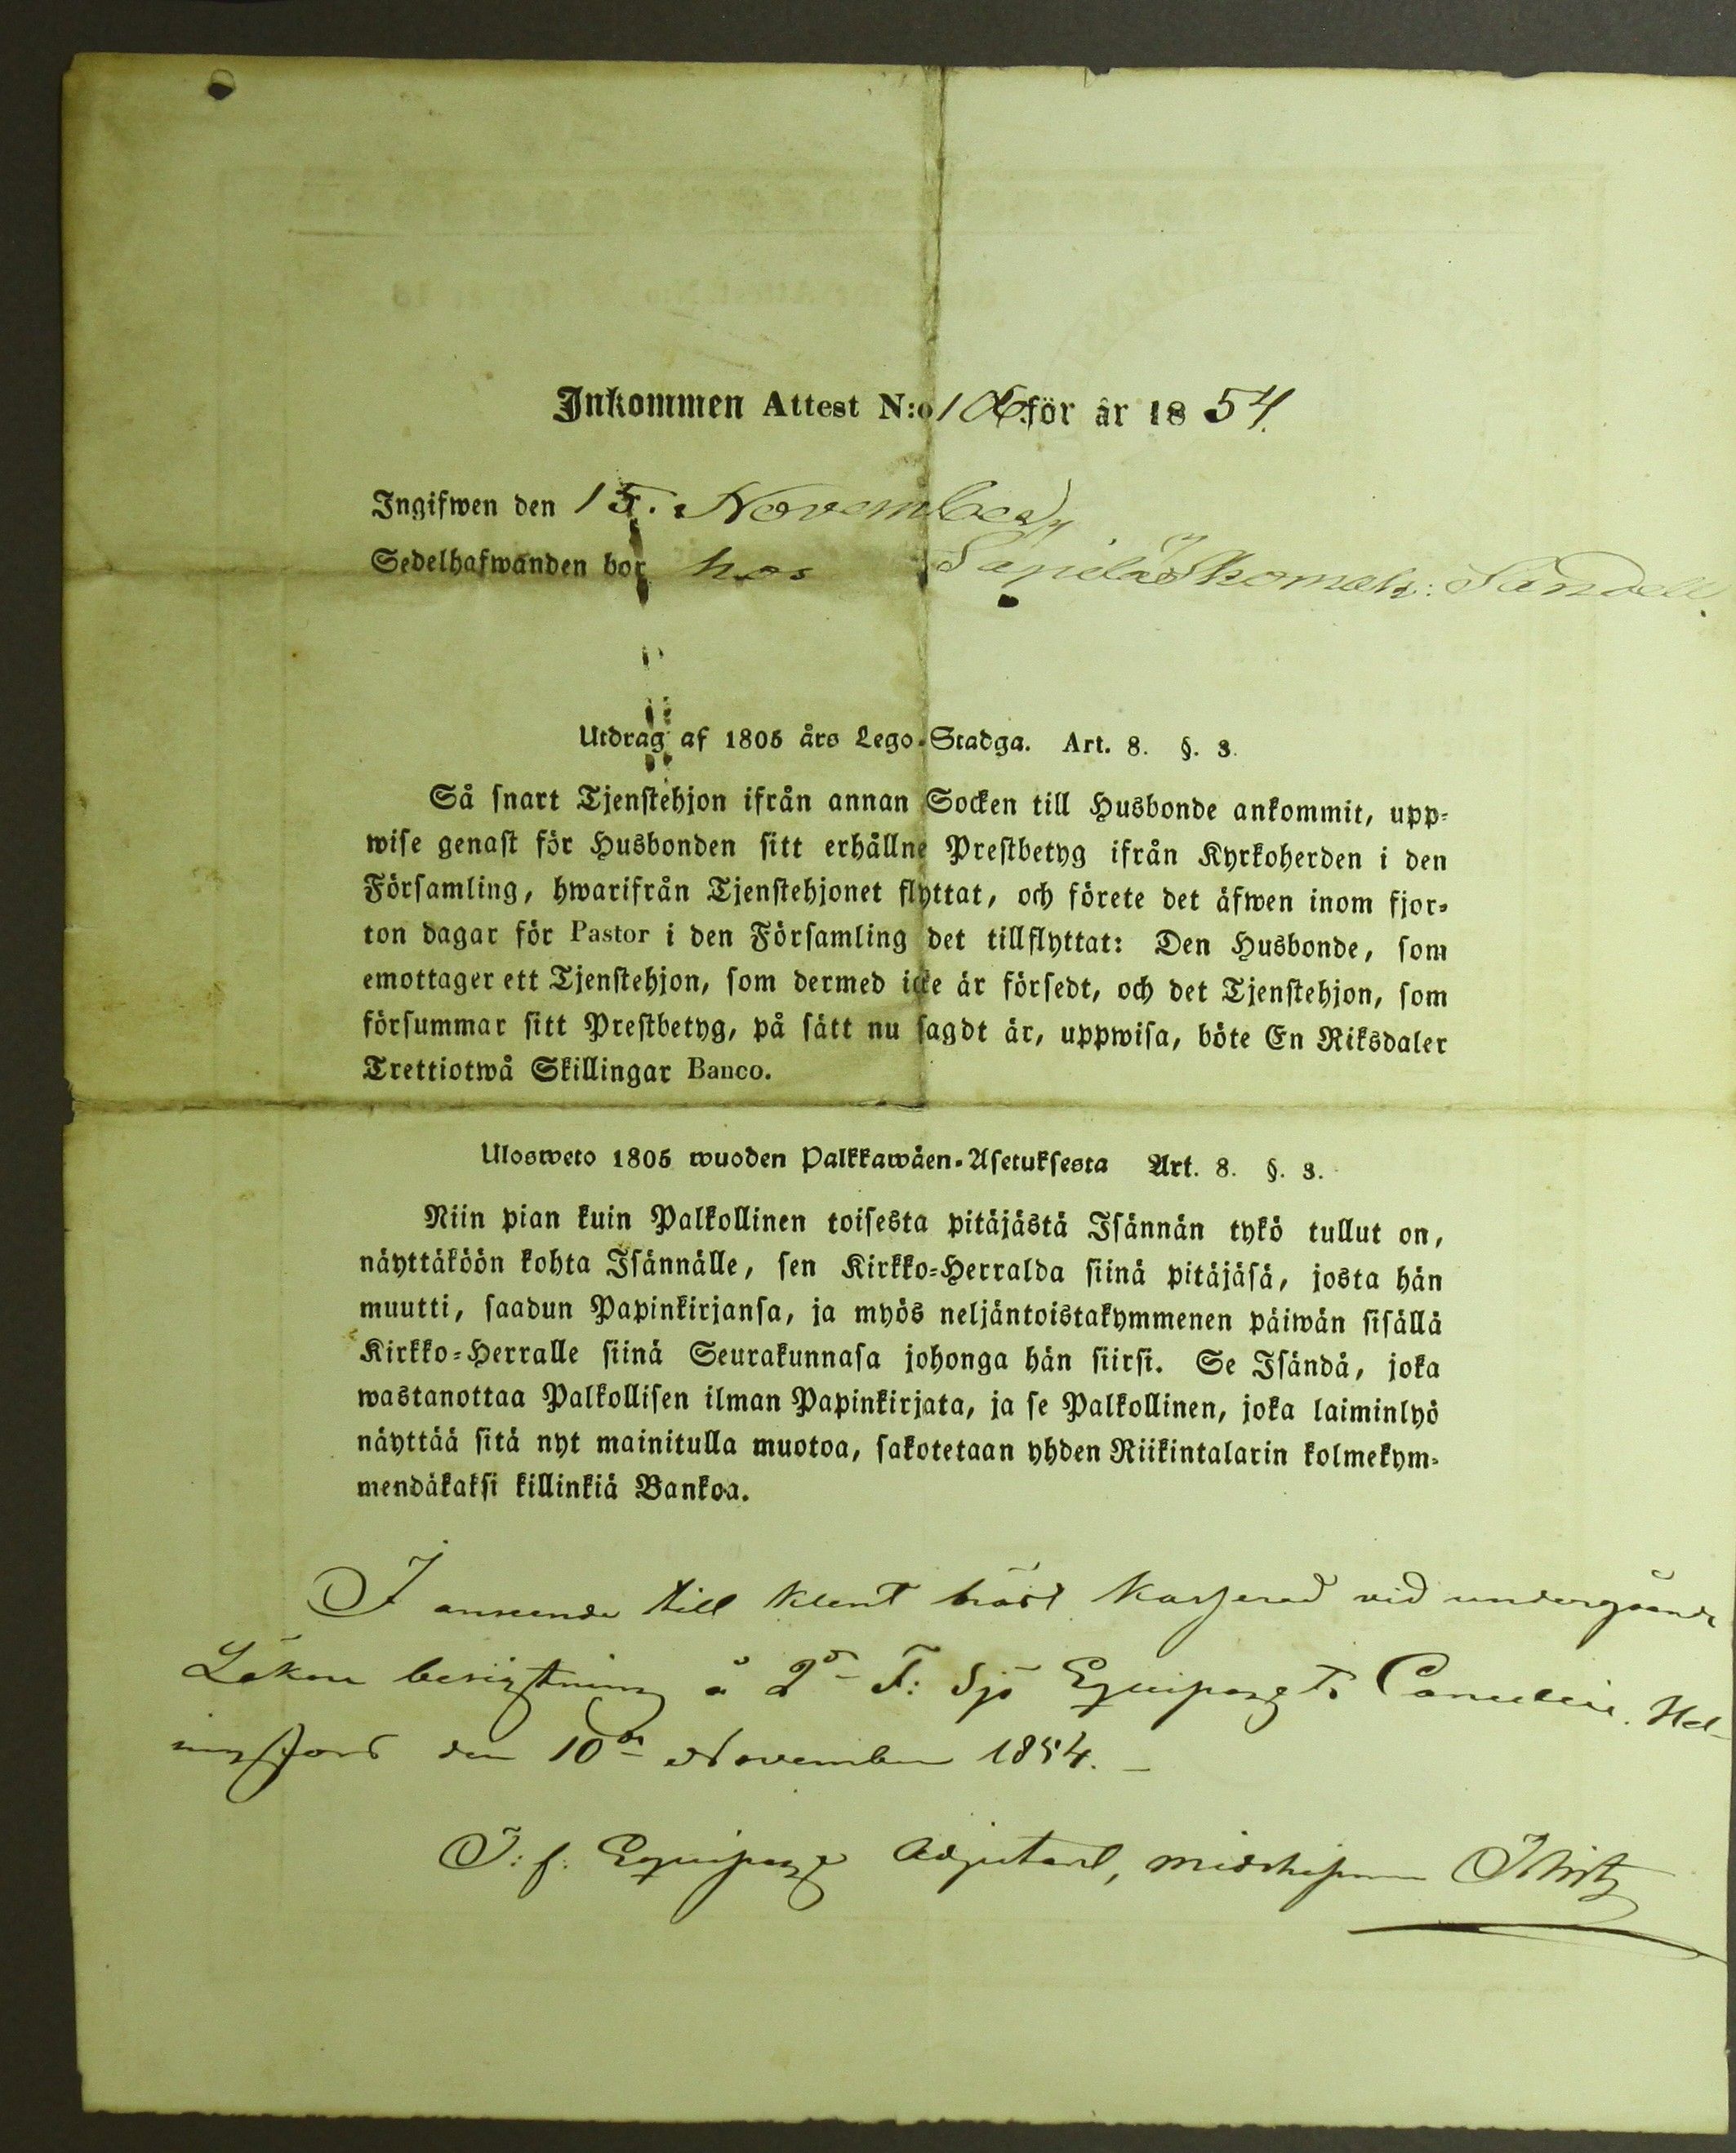 Inkommen Attest N:o 106 för år 1854.
Ingifwen den 15. November
Sedelhafwanden bor hos Skomak: Sandell.
Utdrag af 1805 års Lego-Stadga. Art. 8. §. 3.
Så snart Tjenstehjon ifrån annan Socken till Husbonde ankommit, upp-
wise genast för Husbonden sitt erhållne Prestbetyg ifrån Kyrkoherden i den
Församling, hwarifrån Tjenstehjonet flyttat, och förete det äfwen inom fjor-
ton dagar för Pastor i den Församling det tillflyttat: Den Husbonde, som
emottager ett Tjenstehjon, som dermed icke är försedt, och det Tjenstehjon, som
försummar sitt Prestbetyg, på sätt nu sagdt är, uppwisa, böte En Riksdaler
Trettiotwå Skillingar Banco.
Ulosweto 1805 wuoden Palkkawäen-Asetuksesta Art. 8. §. 3.
Niin pian kuin Palkollinen toisesta pitäjästä Isännän tykö tullut on,
näyttäköön kohta Isännälle, sen Kirkko-Herralda siinä pitäjäsä, josta hän
muutti, saadun Papinkirjansa, ja myös neljäntoistakymmenen päiwän sisällä
Kirkko-Herralle siinä Seurakunnasa johonga hän siirsi. Se Isändä, joka
wastanottaa Palkollisen ilman Papinkirjata, ja se Palkollinen, joka laiminlyö
näyttää sitä nyt mainitulla muotoa, sakotetaan yhden Riikintalarin kolmekym-
mendäkaksi killinkiä Bankoa.
I anseende till klent bröst kasserad vid undergående
Läkare besigtning å 2a F: Sjö Equipagets Cancelie. Hel-
singfors den 10de November 1854.
T: f. Equipage Adjutant, midshipman